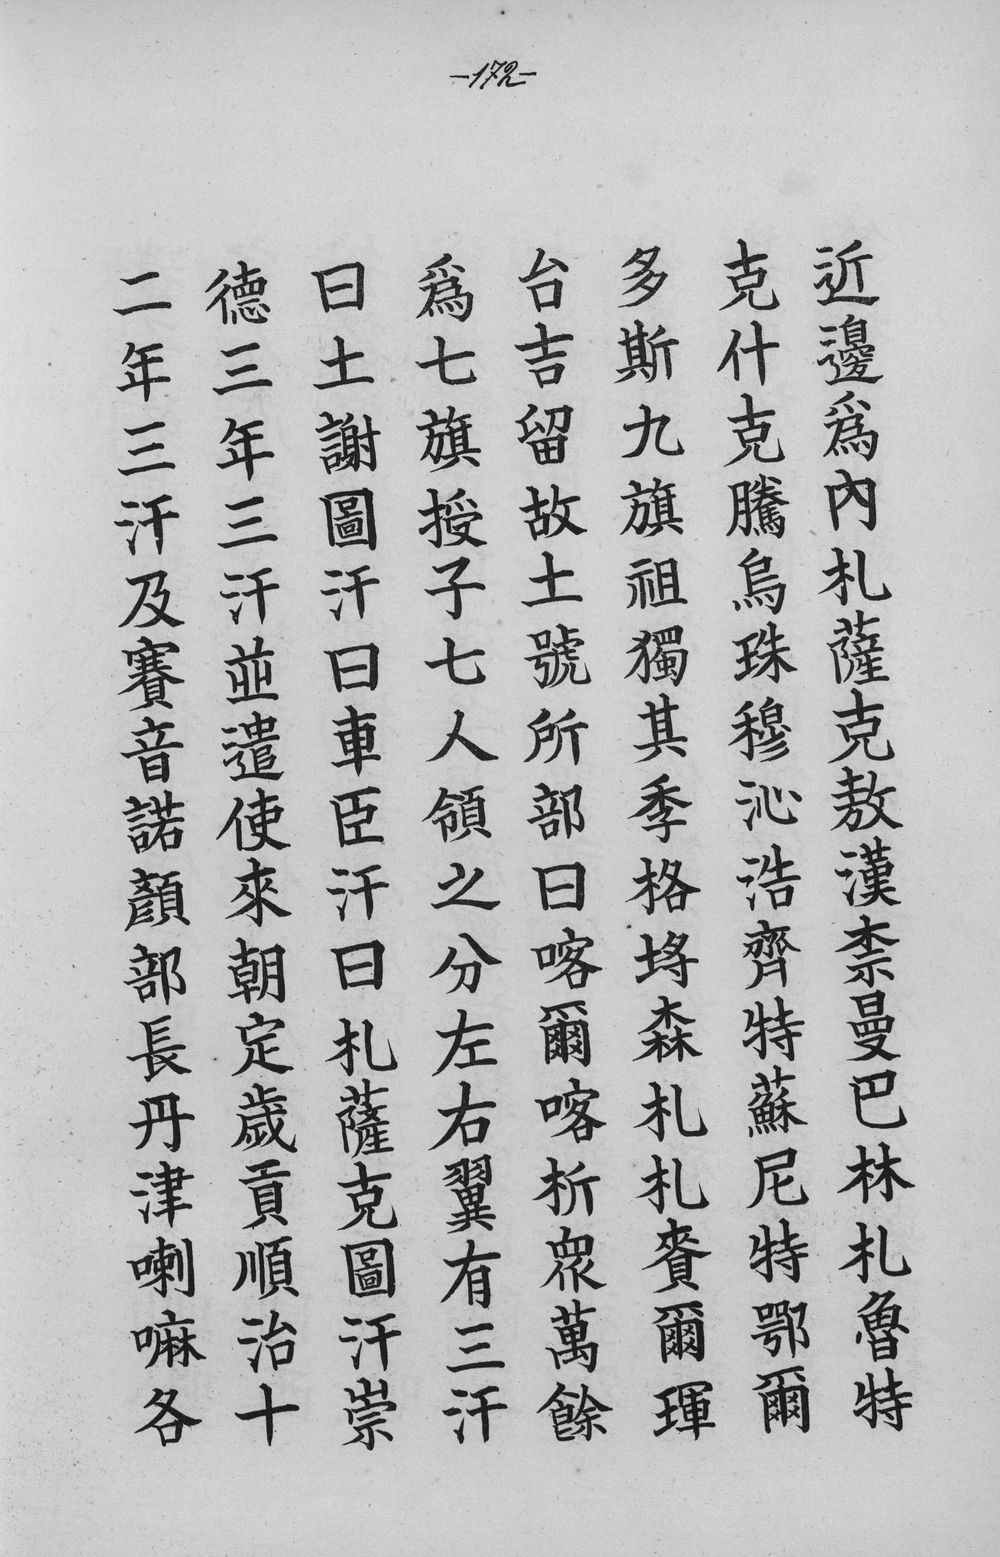 -172-
近邊爲內札薩克敖漢柰曼巴林札魯特
克什克騰烏珠穆沁浩齊特蘇尼特鄂爾
多斯九旗祖獨其季格垺森札札賚爾琿
台吉留故土號所部曰喀爾喀析眾萬餘
爲七旗授子七人領之分左右翼有三汗
曰土謝圖汗曰車臣汗曰札薩克圖汗崇
德三年三汗並遣使來朝定歲貢順治十
二年三汗及賽音諾顏部長丹津喇嘛各